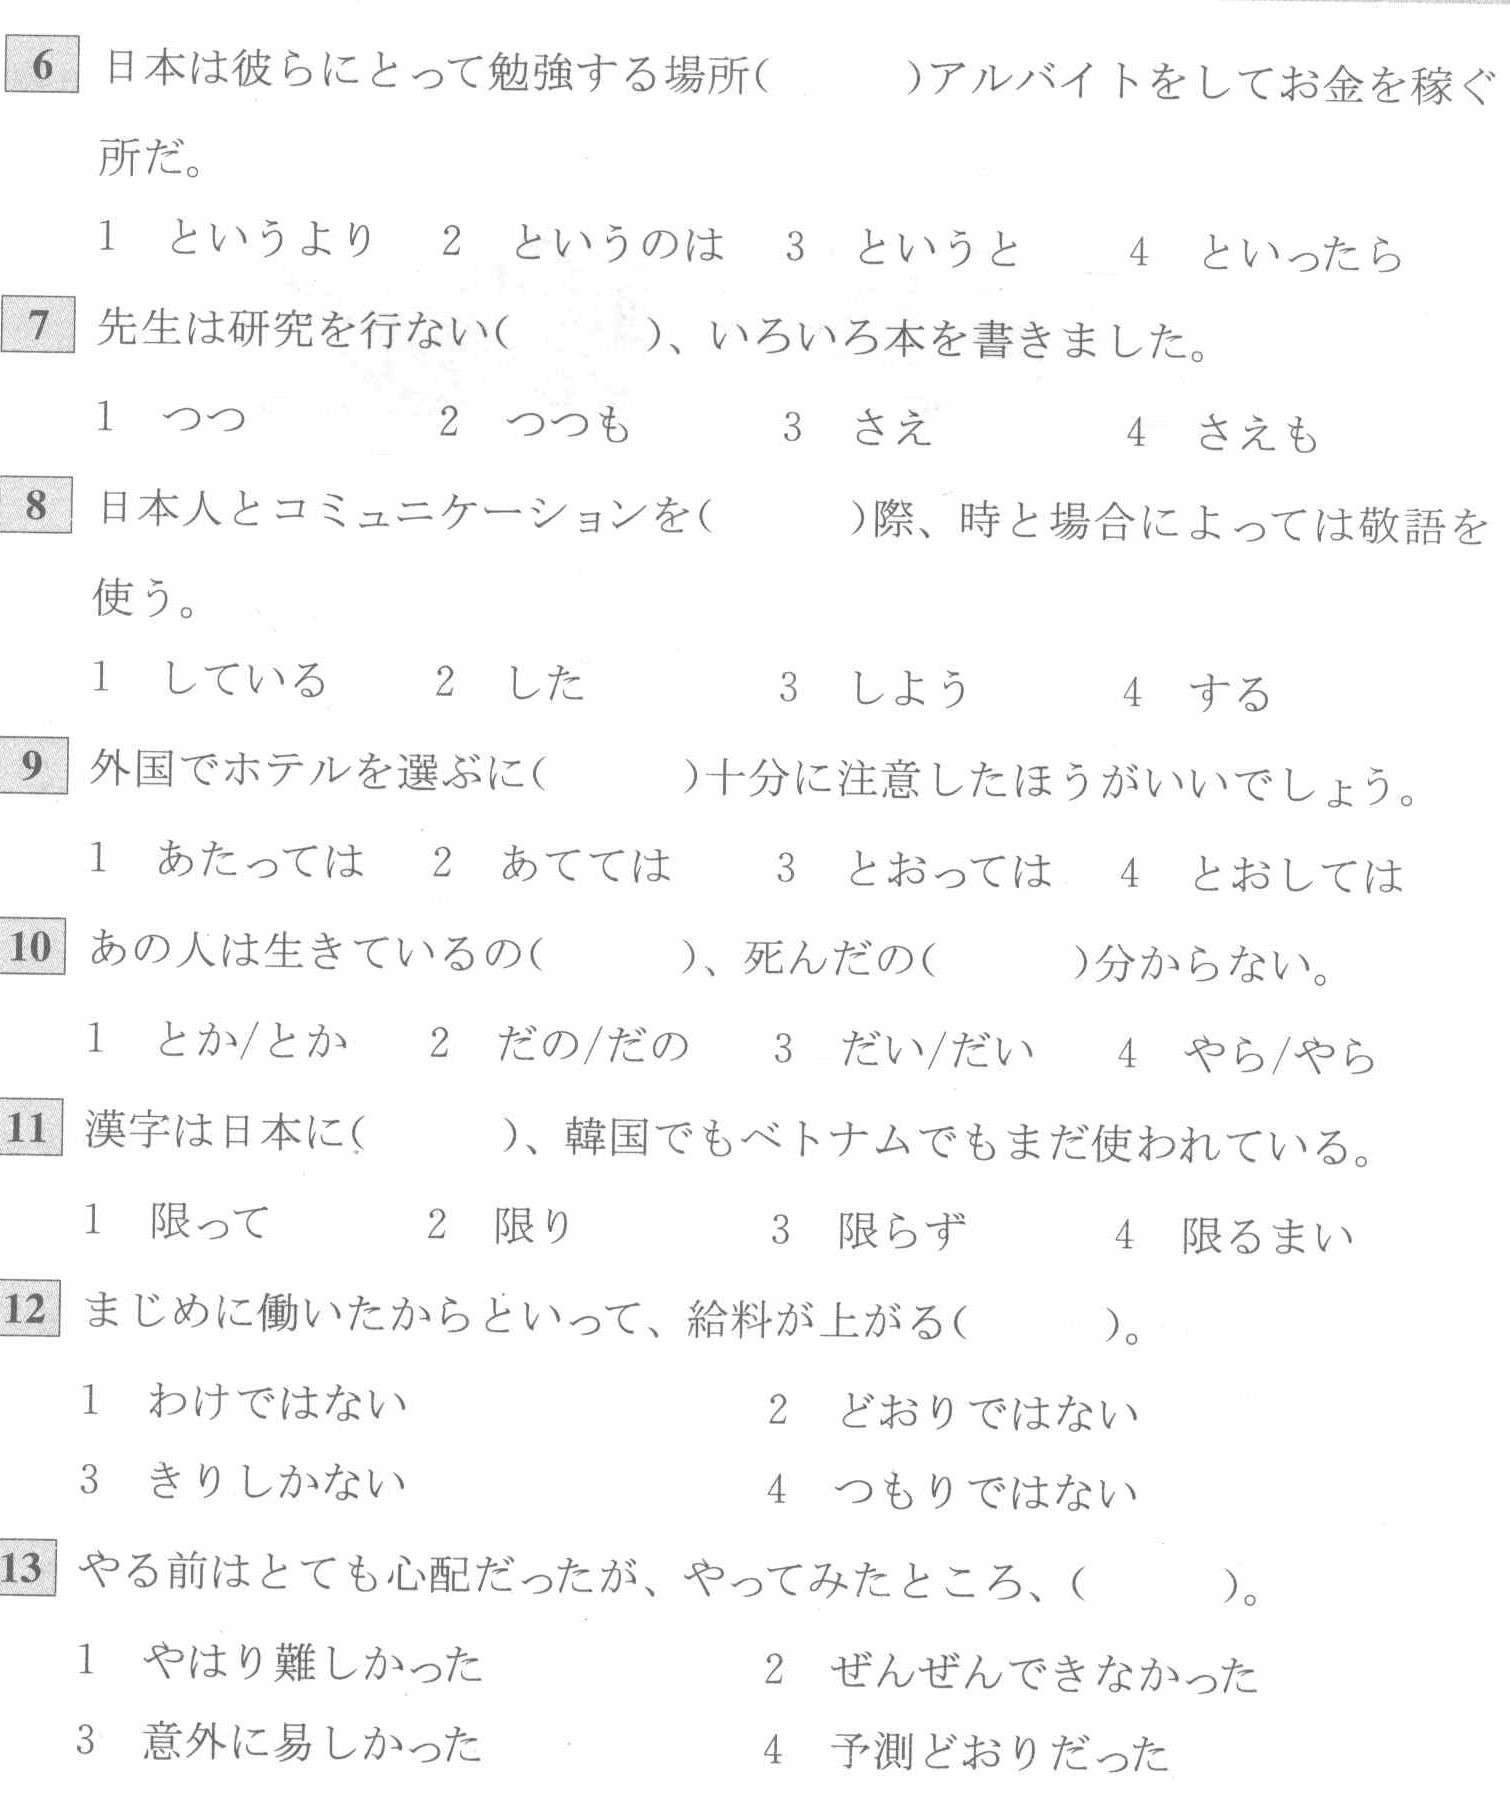 6 日本は彼らにとって勉強する場所(　　　)アルバイトをしてお金を稼ぐ
所だ。
1 というより　2 というのは　3 というと　4 といったら
7 先生は研究を行ない(　　　)、いろいろ本を書きました。
1 つつ　2 つつも　3 さえ　4 さえも
8 日本人とコミュニケーションを(　　　)際、時と場合によっては敬語を
使う。
1 している　2 した　3 しよう　4 する
9 外国でホテルを選ぶに(　　　)十分に注意したほうがいいでしょう。
1 あたっては　2 あてては　3 とおっては　4 とおしては
10 あの人は生きているの(　　　)、死んだの(　　　)分からない。
1 とか/とか　2 だの/だの　3 だい/だい　4 やら/やら
11 漢字は日本に(　　　)、韓国でもベトナムでもまだ使われている。
1 限って　2 限り　3 限らず　4 限るまい
12 まじめに働いたからといって、給料が上がる(　　　)。
1 わけではない　2 どおりではない
3 きりしかない　4 つもりではない
13 やる前はとても心配だったが、やってみたところ、(　　　)。
1 やはり難しかった　2 ぜんぜんできなかった
3 意外に易しかった　4 予測どおりだった